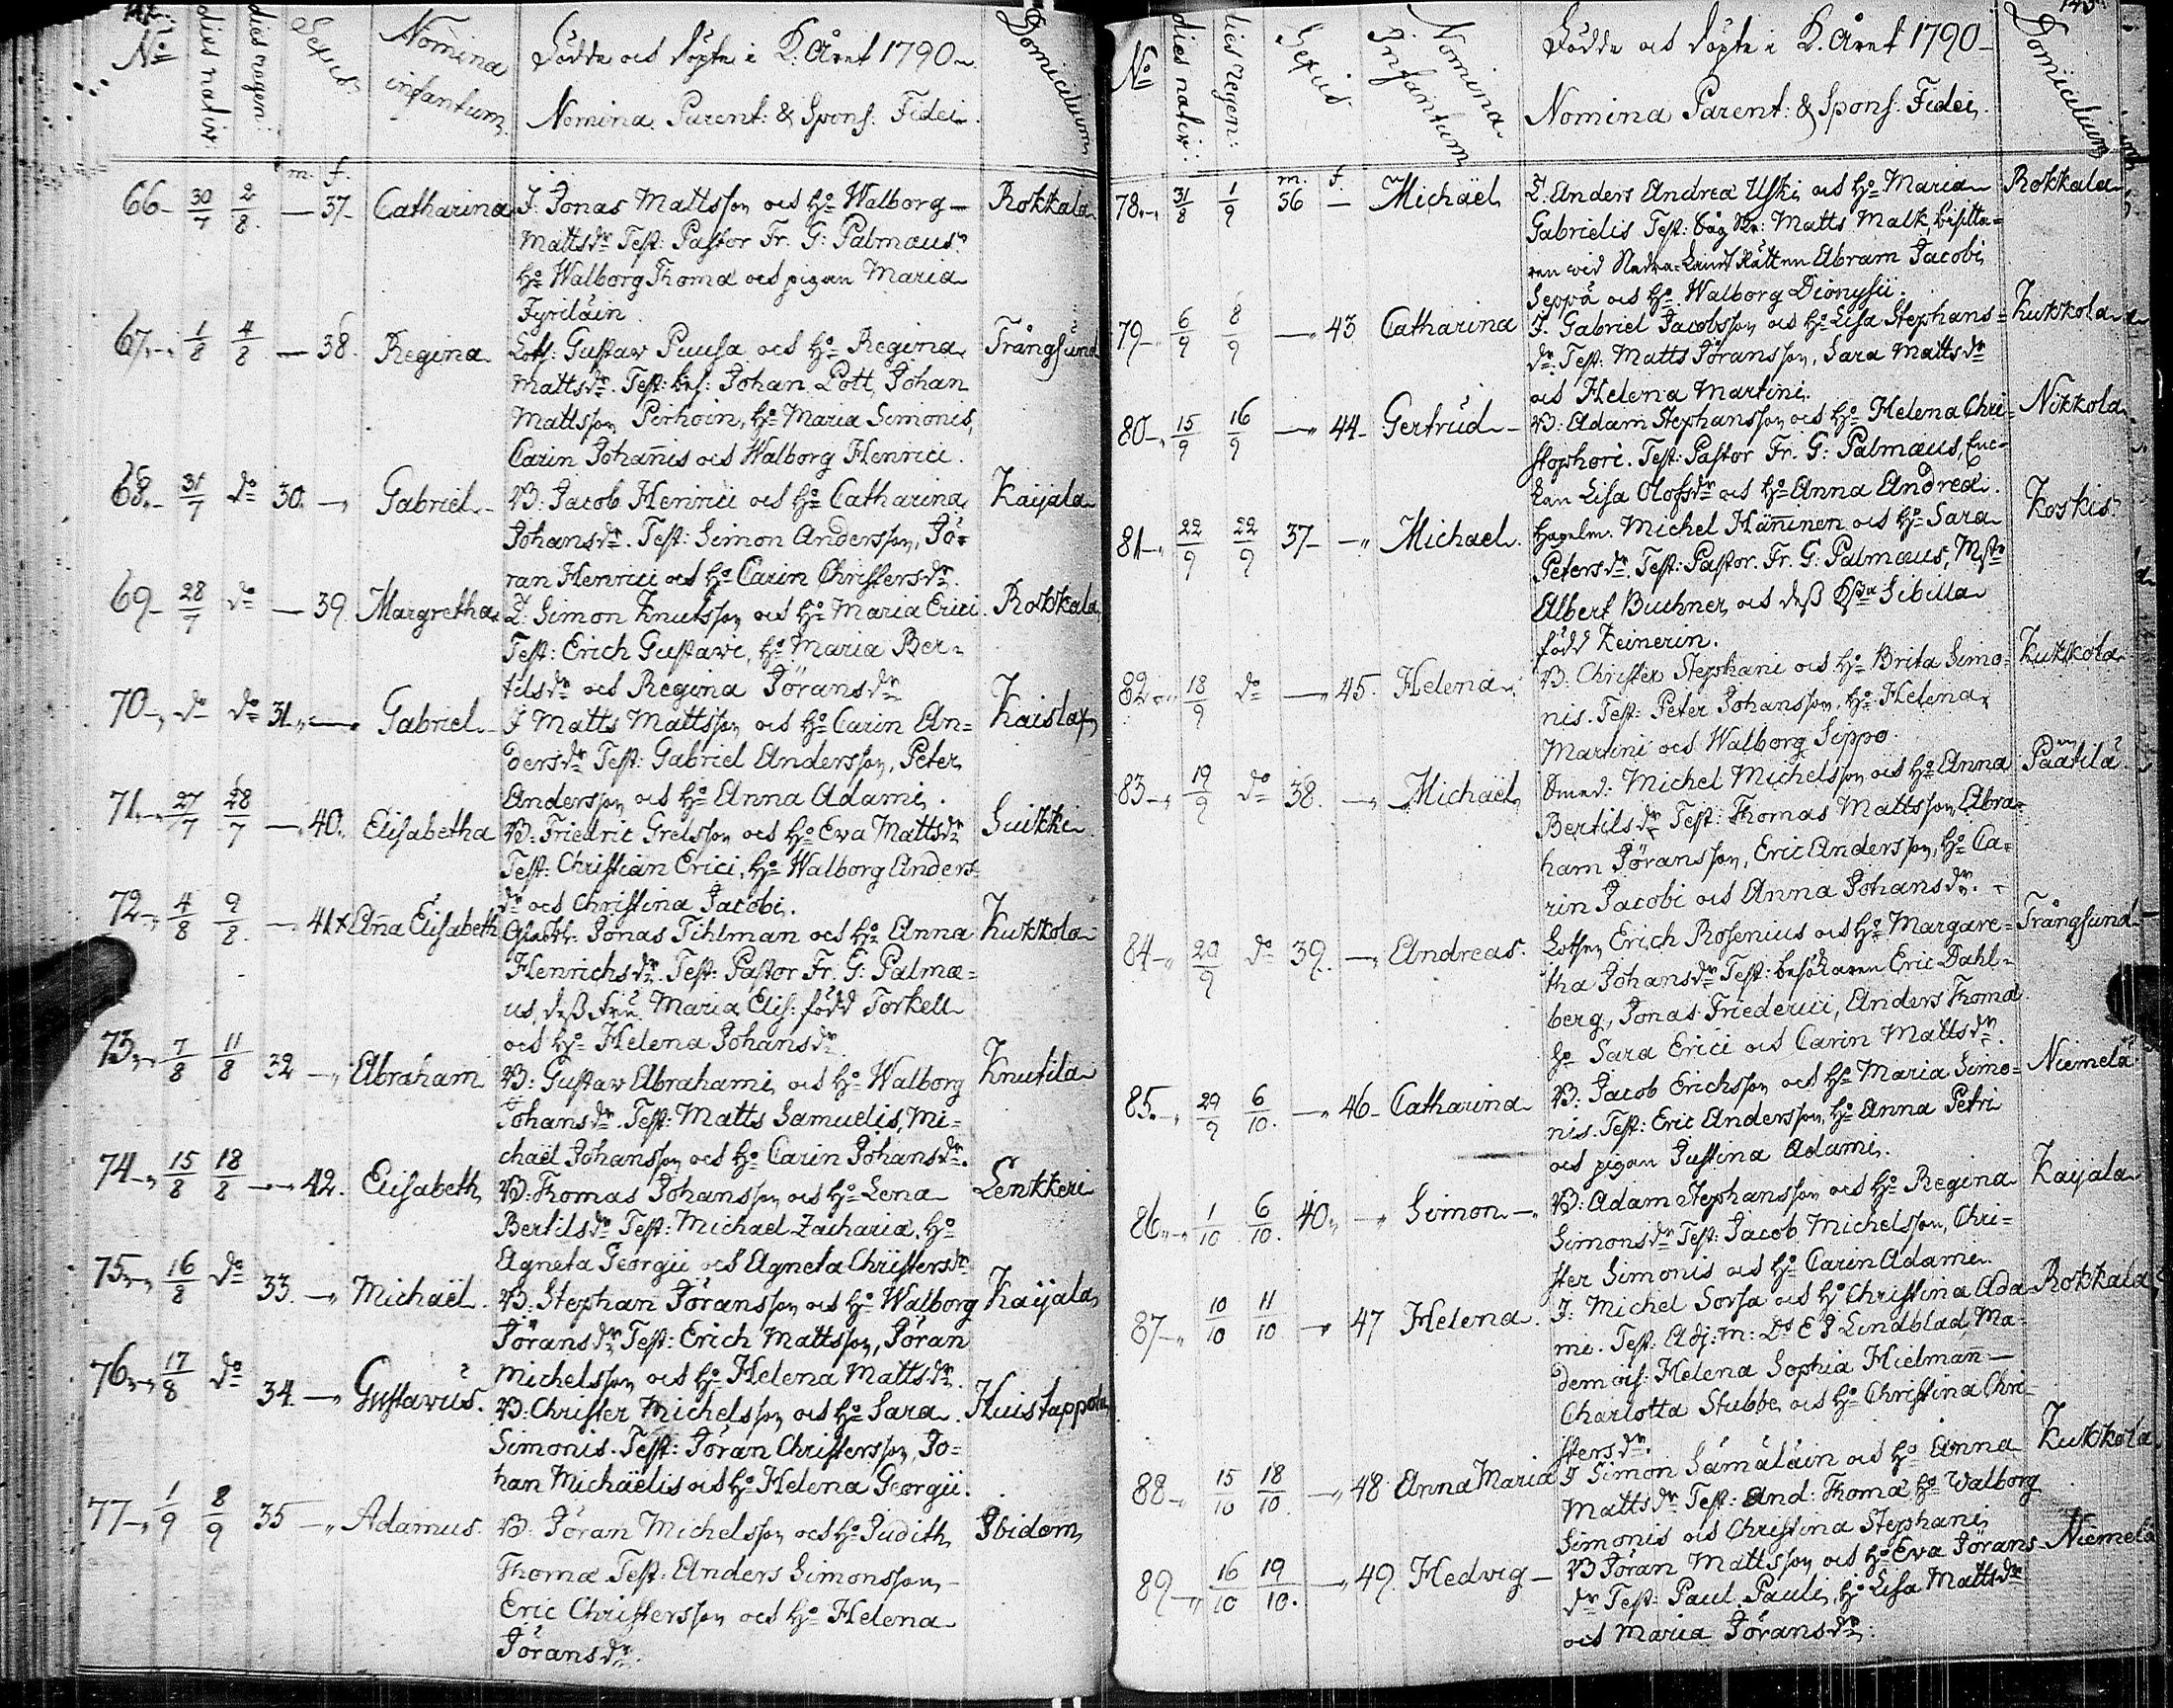 No
dies nativ.
dies regen:
Sexus
Nomina infantum
Födde och döpte i K: Året 1790.
Nomina Parent: & Spons. Fidei.
Domicilium
m. f.
66 30/7 2/8 — 37 Catharina I. Jonas Mattsson och Ho Walborg Rokkala
Mattsdr. Test: Pastor Fr. G: Palmæus,
Ho Walborg Thomæ och pigan Maria
Pyriläin
67 1/8 4/8 — 38. Regina Lots: Gustav Puusa och Ho Regina Trångsund
Mattsdr. Test: bes: Johan Pott, Johan
Mattsson Perhoin, Ho Maria Simonis,
Carin Johannis och Walborg Henrici.
68 31/7 do 30. — Gabriel B: Jacob Henrici och Ho Catharina Kaijala
Johansdr. Test: Simon Andersson, Jö-
ran Henrici och Ho Carin Christersdr.
69 28/7 do — 39 Margretha I. Simon Knutsson och Ho Maria Erici Rokkala
Test: Erich Gustavi, Ho Maria Ber-
tilsdr och Regina Jöransdr
70 do do 31. — Gabriel I Matts Mattsson och Ho Carin An- Kaislax
dersdr Test: Gabriel Andersson, Peter
Andersson och Ho Anna Adami.
71 27/7 28/7 — 40. Elisabetha B: Friedric Grelsson och Ho Eva Mattsdr Suikki
Test: Christian Erici, Ho Walborg Anders-
dr och Christina Jacobi.
72 4/8 9/8. — 41 x Anna Elisabeth Jonas Tihlman och Ho Anna Kukkola
Henrichsdr. Test: Pastor Fr. G: Palmæ-
us, dess fru Maria Elis: född Torkell
och Ho Helena Johansdr
73 7/8 11/8 32 — Abraham B: Gustav Abrahami och Ho Walborg Knutila
Johansdr. Test: Matts Samuelis, Mi-
chaël Johansson och Ho Carin Johansdr.
74 15/8 18/8 — 42. Elisabeth B: Thomas Johansson och Ho Lena Lenkkeri
Bertilsdr Test: Michael Zachariæ, Ho
Agneta Georgii och Agneta Christersdr
75 16/8 do 33. — Michaël. B: Stephan Jöransson och Ho Walborg Kaijala
Jöransdr Test: Erich Mattsson, Jöran
Michelsson och Ho Helena Mattsdr.
76 17/8 do 34. — Gustavus. B: Christer Michelsson och Ho Sara Huistappola
Simonis. Test: Jöran Christersson, Jo-
han Michaëlis och Ho Helena Georgii.
77 1/9 8/9 35 — Adamus. B: Jöran Michelsson och Ho Judith Ibidem
Thomæ Test: Anders Simonsson
Eric Christersson och Ho Helena
Jöransdr.
No
dies nativ:
dies regen:
Sexus
Nomina Infantum
Födde och döpte i K. Året 1790
Nomina Parent: & Spons. Fidei
Domicilium
m. f.
78. 31/8 1/9 36 — Michaël I. Anders Andreæ Uski och Ho Maria Rokkala
Gabrielis Test: Matts Malk, bisitta-
ren vid Nedra-Lands Rätten Abram Jacobi
Seppä och Ho Walborg Dionysii.
79 6/9 8/9 — 43 Catharina I. Gabriel Jacobsson och Ho Lisa Stephans- Kukkola
dr. Test: Matts Jöransson, Sara Mattsdr
och Helena Martini.
80 15/9 16/9 — 44 Gertrud B: Adam Stephansson och Ho Helena Chri- Nikkola
stophori. Test: Pastor Fr. G: Palmæus, Enc-
kan Lisa Olofsdr och Ho Anna Andreæ.
81 22/9 22/9 37 — Michael. Michel Hänninen och Ho Sara Koskis
Petersdr. Test: Pastor Fr. G: Palmæus, Mstr
Albert Buchner och dess Sibilla
född Keinerin.
82 18/9 do — 45. Helena B. Christer Stephani och Ho Brita Simo- Kukkola
nis. Test: Peter Johansson, Ho Helena
Martini och Walborg Seppo.
83 19/9 do 38. — Michaël Smed: Michel Michelsson och Ho Anna Päätilä
Bertilsdr Test: Thomas Mattsson, Abra-
ham Jöransson, Eric Andersson, Ho Ca-
rin Jacobi och Anna Johansdr.
84 20/9 do 39. — Andreas. Lotsen Erich Rosenius och Ho Margare- Trångsund
tha Johansdr Test: besökaren Eric Dahl-
berg, Jonas Friederici, Anders Thomæ
Ho Sara Erici och Carin Mattsdr.
85 29/9 6/10. — 46 Catharina B: Jacob Erichsson och Ho Maria Simo- Niemelä
nis. Test: Eric Andersson, Ho Anna Petri
och pigan Justina Adami.
86 1/10 6/10. 40 — Simon B: Adam Stephansson och Ho Regina Kaijala
Simonsdr Test: Jacob Michelsson, Chri-
ster Simonis och Ho Carin Adami.
87 10/10 11/10 — 47 Helena. I: Michel Sorsa och Ho Christina Ada- Rokkala
mi. Test: Adj: m: Ds E J Lindblad, Ma-
demois: Helena Sophia Hielmann
Charlotta Stubbe och Ho Christina Chri-
stersdr.
88 15/10 18/10. — 48 Anna Maria I Simon Sämäläin och Ho Anna Kukkola
Mattsdr Test: And: Thomæ Ho Walborg
Simonis och Christina Stephani
89 16/10 19/10. — 49. Hedvig B Jöran Mattsson och Ho Eva Jörans- Niemelä
dr Test: Paul Pauli, Ho Lisa Mattsdr
och Maria Jöransdr.